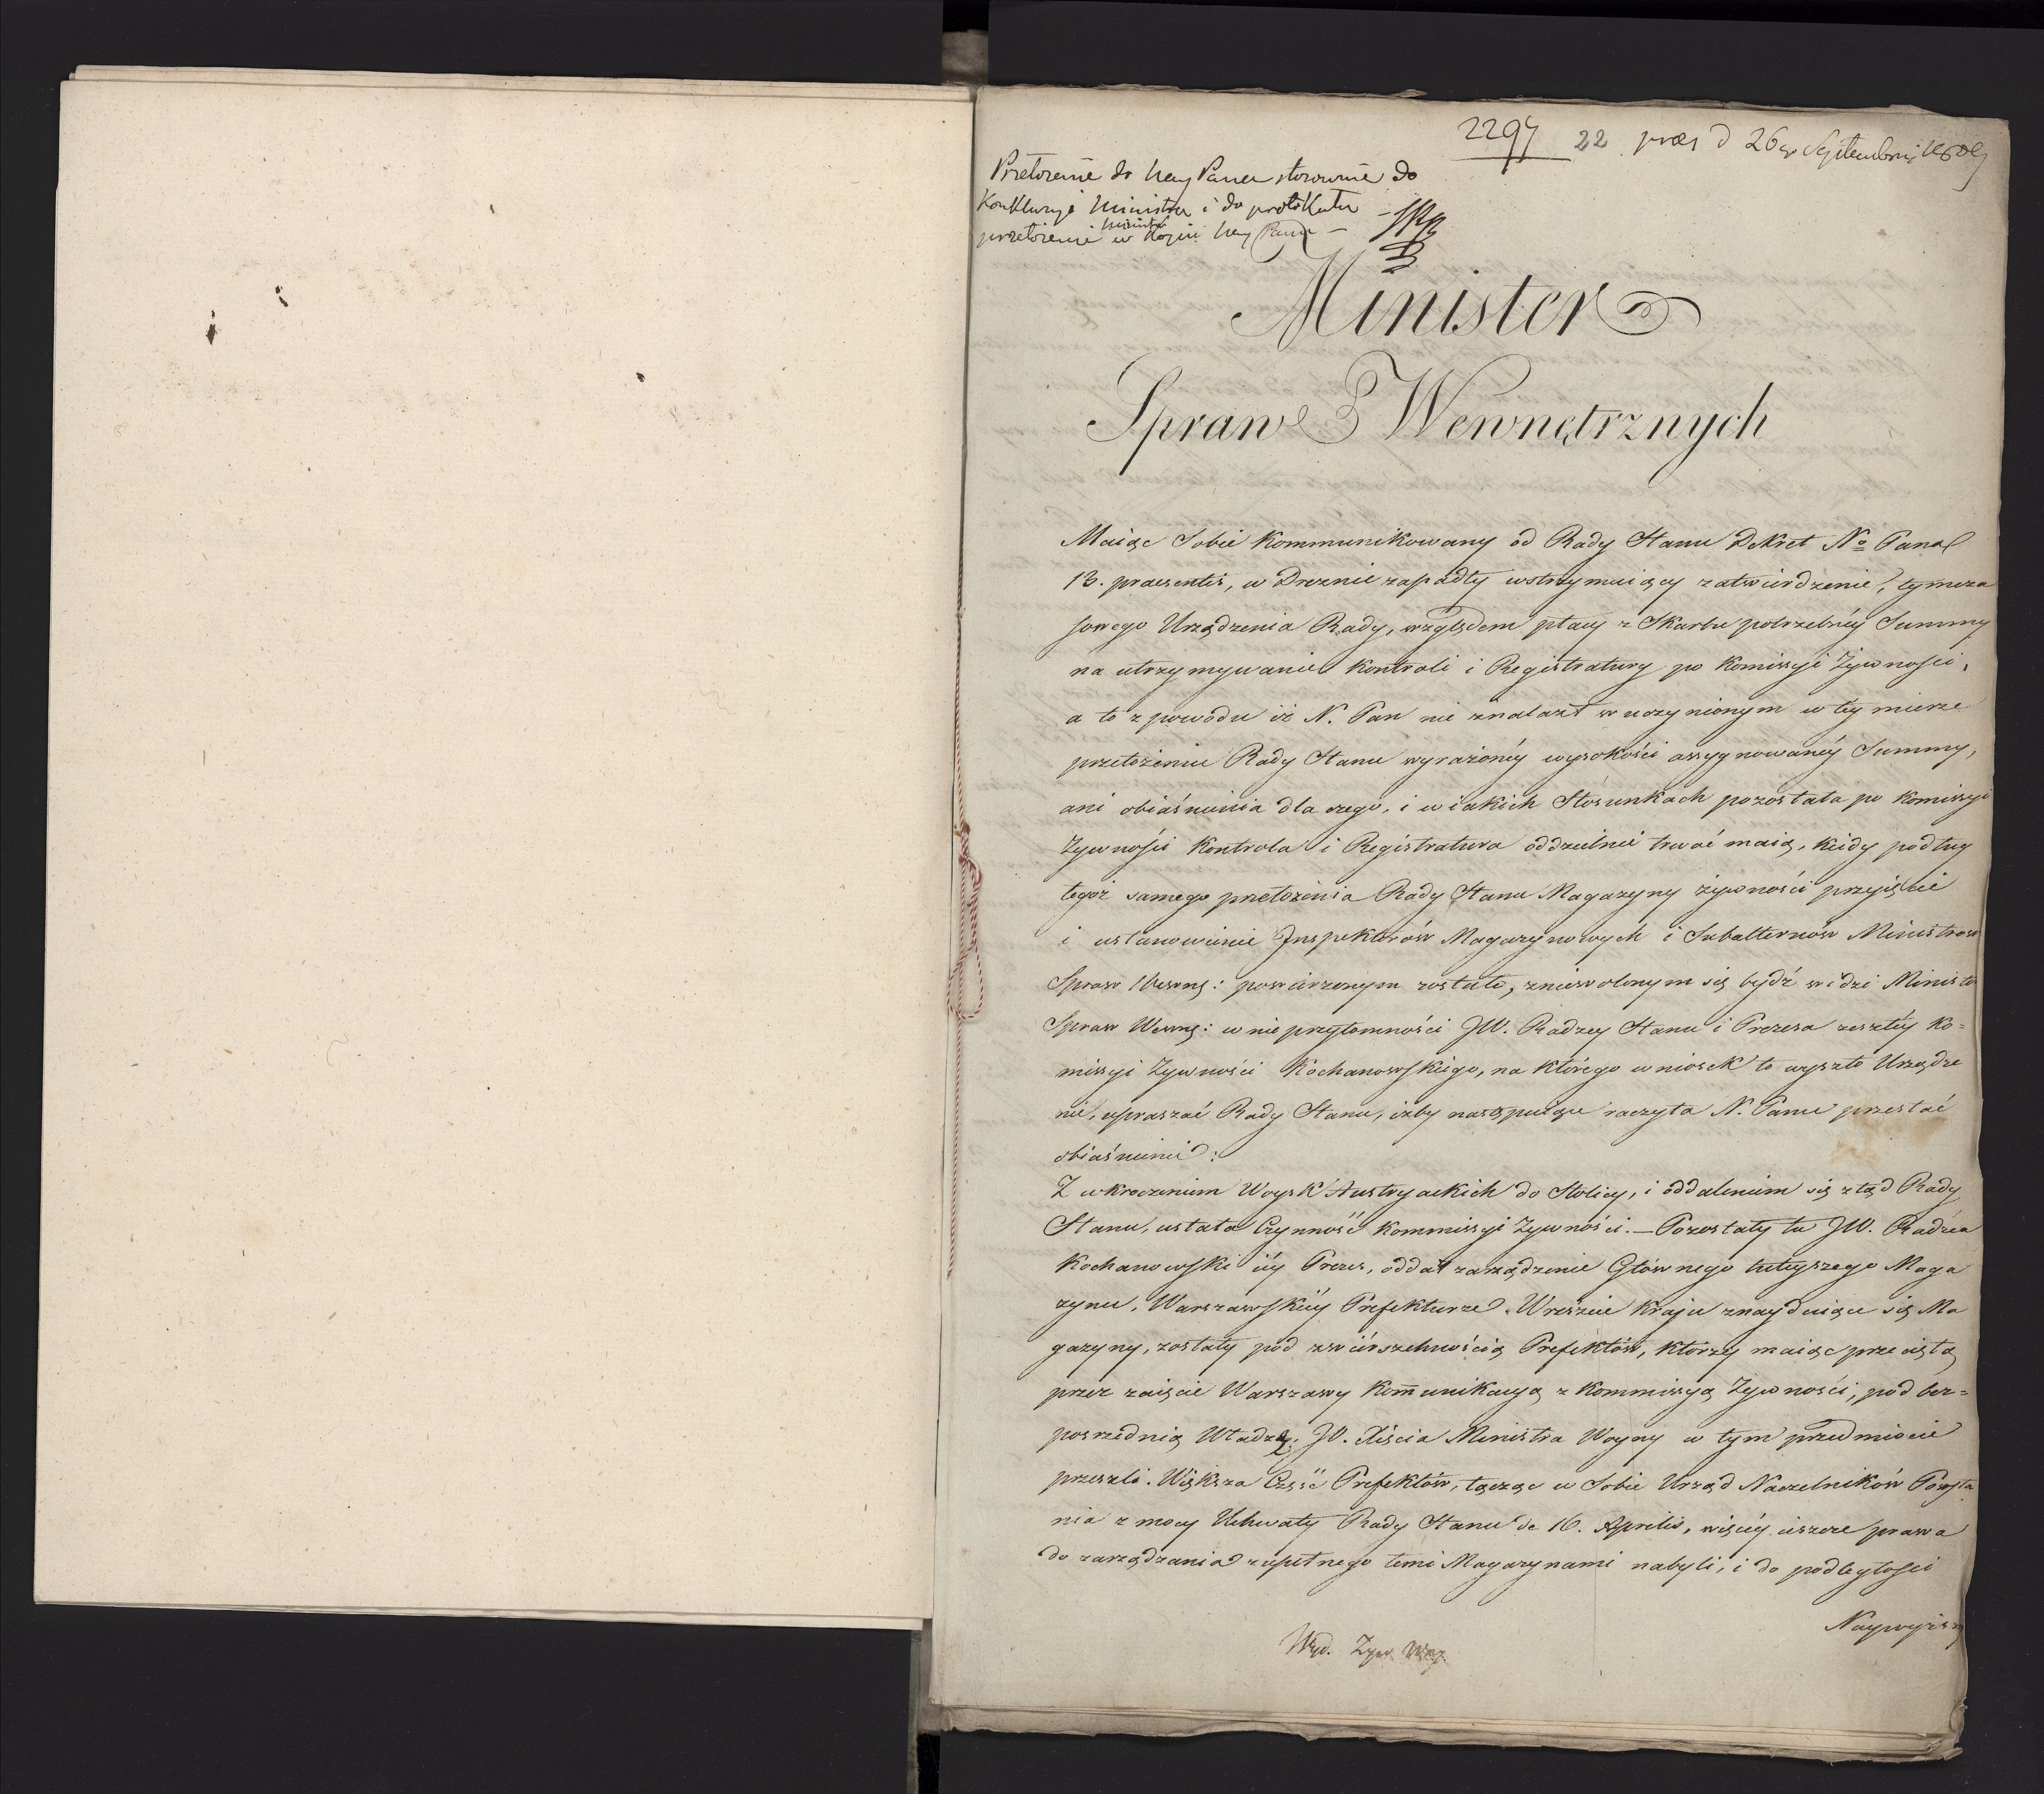 2297 22 præs d 26 go Septembris 1809
Przełożenie do Nay Pana stosownie do
Konkluzyi Ministra i do protokułu
przełożenie Ministra w kopii Nay Pana —
Minister
Spraw Wewnętrznych
Maiąc Sobie kommunikowany od Rady Stanu Dekret No Pana
13. praesentis, w Dreznie zapadły wstrzymuiący zatwierdzenie, tymcza
sowego Urządzenia Rady, względem płacy z Skarbu potrzebnéy Summy
na utrzymywanie kontroli i Registratury po Komissyi Żywności,
a to z powodu iż N. Pan nie znalazł w uczynionym w tey mierze
przełożeniu Rady Stanu wyrażonéy wysokości assygnowanéy Summy,
ani obiaśnienia dla czego, i w iakich Stosunkach pozostała po Komissyi
Żywności Kontrola i Registratura oddzielnie trwać maią, kiedy podług
tegoż samego przełożenia Rady Stanu Magazyny żywności przyięcie
i ustanowienie Inspektorów Magazynowych i Subalternów Ministrowi
Spraw Wewnę: powierzonym zostało, zniewolonym się bydź widzi Minister
Spraw Wewnę: w nieprzytomności JW. Radzcy Stanu i Prezesa zeszłéy Ko=
missyi Żywności Kochanowskiego, na którego wniosek to wyszło Urządze
nie, upraszać Rady Stanu, iżby następuiące raczyła N. Panu przesłać
obiaśnienie:
Z wkroczeniem Woysk Austryackich do Stolicy, i oddaleniem się ztąd Rady
Stanu, ustała Czynność Kommissyi Żywności. — Pozostały tu JW. Radzca
Kochanowski iéy Prezes, oddał zarządzenie Głównego tuteyszego Maga
zynu, Warszawskiéy Prefekturze. W reszcie Kraju znayduiące się Ma
gazyny, zostały pod zwiérzchnością Prefektów, którzy maiąc przeciętą
przez zaięcie Warszawy komunikacyą z Kommissyą Żywności, pod bez=
pośrednią Władzę JO. Xięcia Ministra Woyny w tym przedmiocie
przeszli. Większa Część Prefektów, łącząc w Sobie Urząd Naczelników Powsta
nia z mocy Uchwały Rady Stanu de 16. Aprilis, więcéy ieszcze prawa
do zarządzania zupełnego temi Magazynami nabyli, i do podległości
Naywyższey
Wyd. Żyw. Woy.